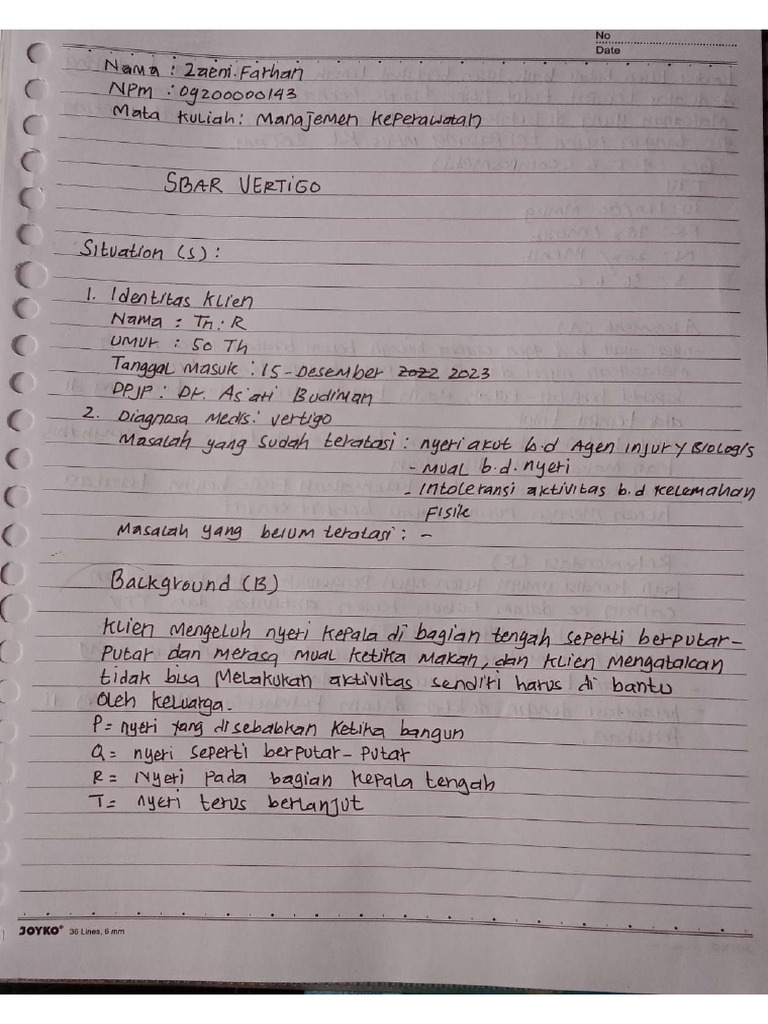 No
Date
Nama : Zaeni.Farhan
NPM : 09200000143
Mata Kuliah : Manajemen Keperawatan
SBAR VERTIGO
Situation (S) :
1. Identitas Klien
Nama : Tn. R
Umur : 50 Th
Tanggal Masuk : 15 - Desember 2022 2023
DPJP : Dr. As'ari Budiman
2. Diagnosa Medis : Vertigo
Masalah yang sudah teratasi : nyeri akut b.d Agen injury Biologis
- Mual b.d. nyeri
- Intoleransi aktivitas b.d kelemahan
Fisik
Masalah yang belum teratasi : -
Background (B)
Klien Mengeluh nyeri kepala di bagian tengah seperti berputar-
putar dan merasa mual ketika makan, dan klien Mengatakan
tidak bisa Melakukan aktivitas sendiri harus di bantu
Oleh keluarga.
P = nyeri yang disebabkan ketika bangun
Q = nyeri seperti berputar - putar
R = Nyeri pada bagian kepala tengah
T = nyeri terus berlanjut
JOYKO® 36 Lines, 6 mm